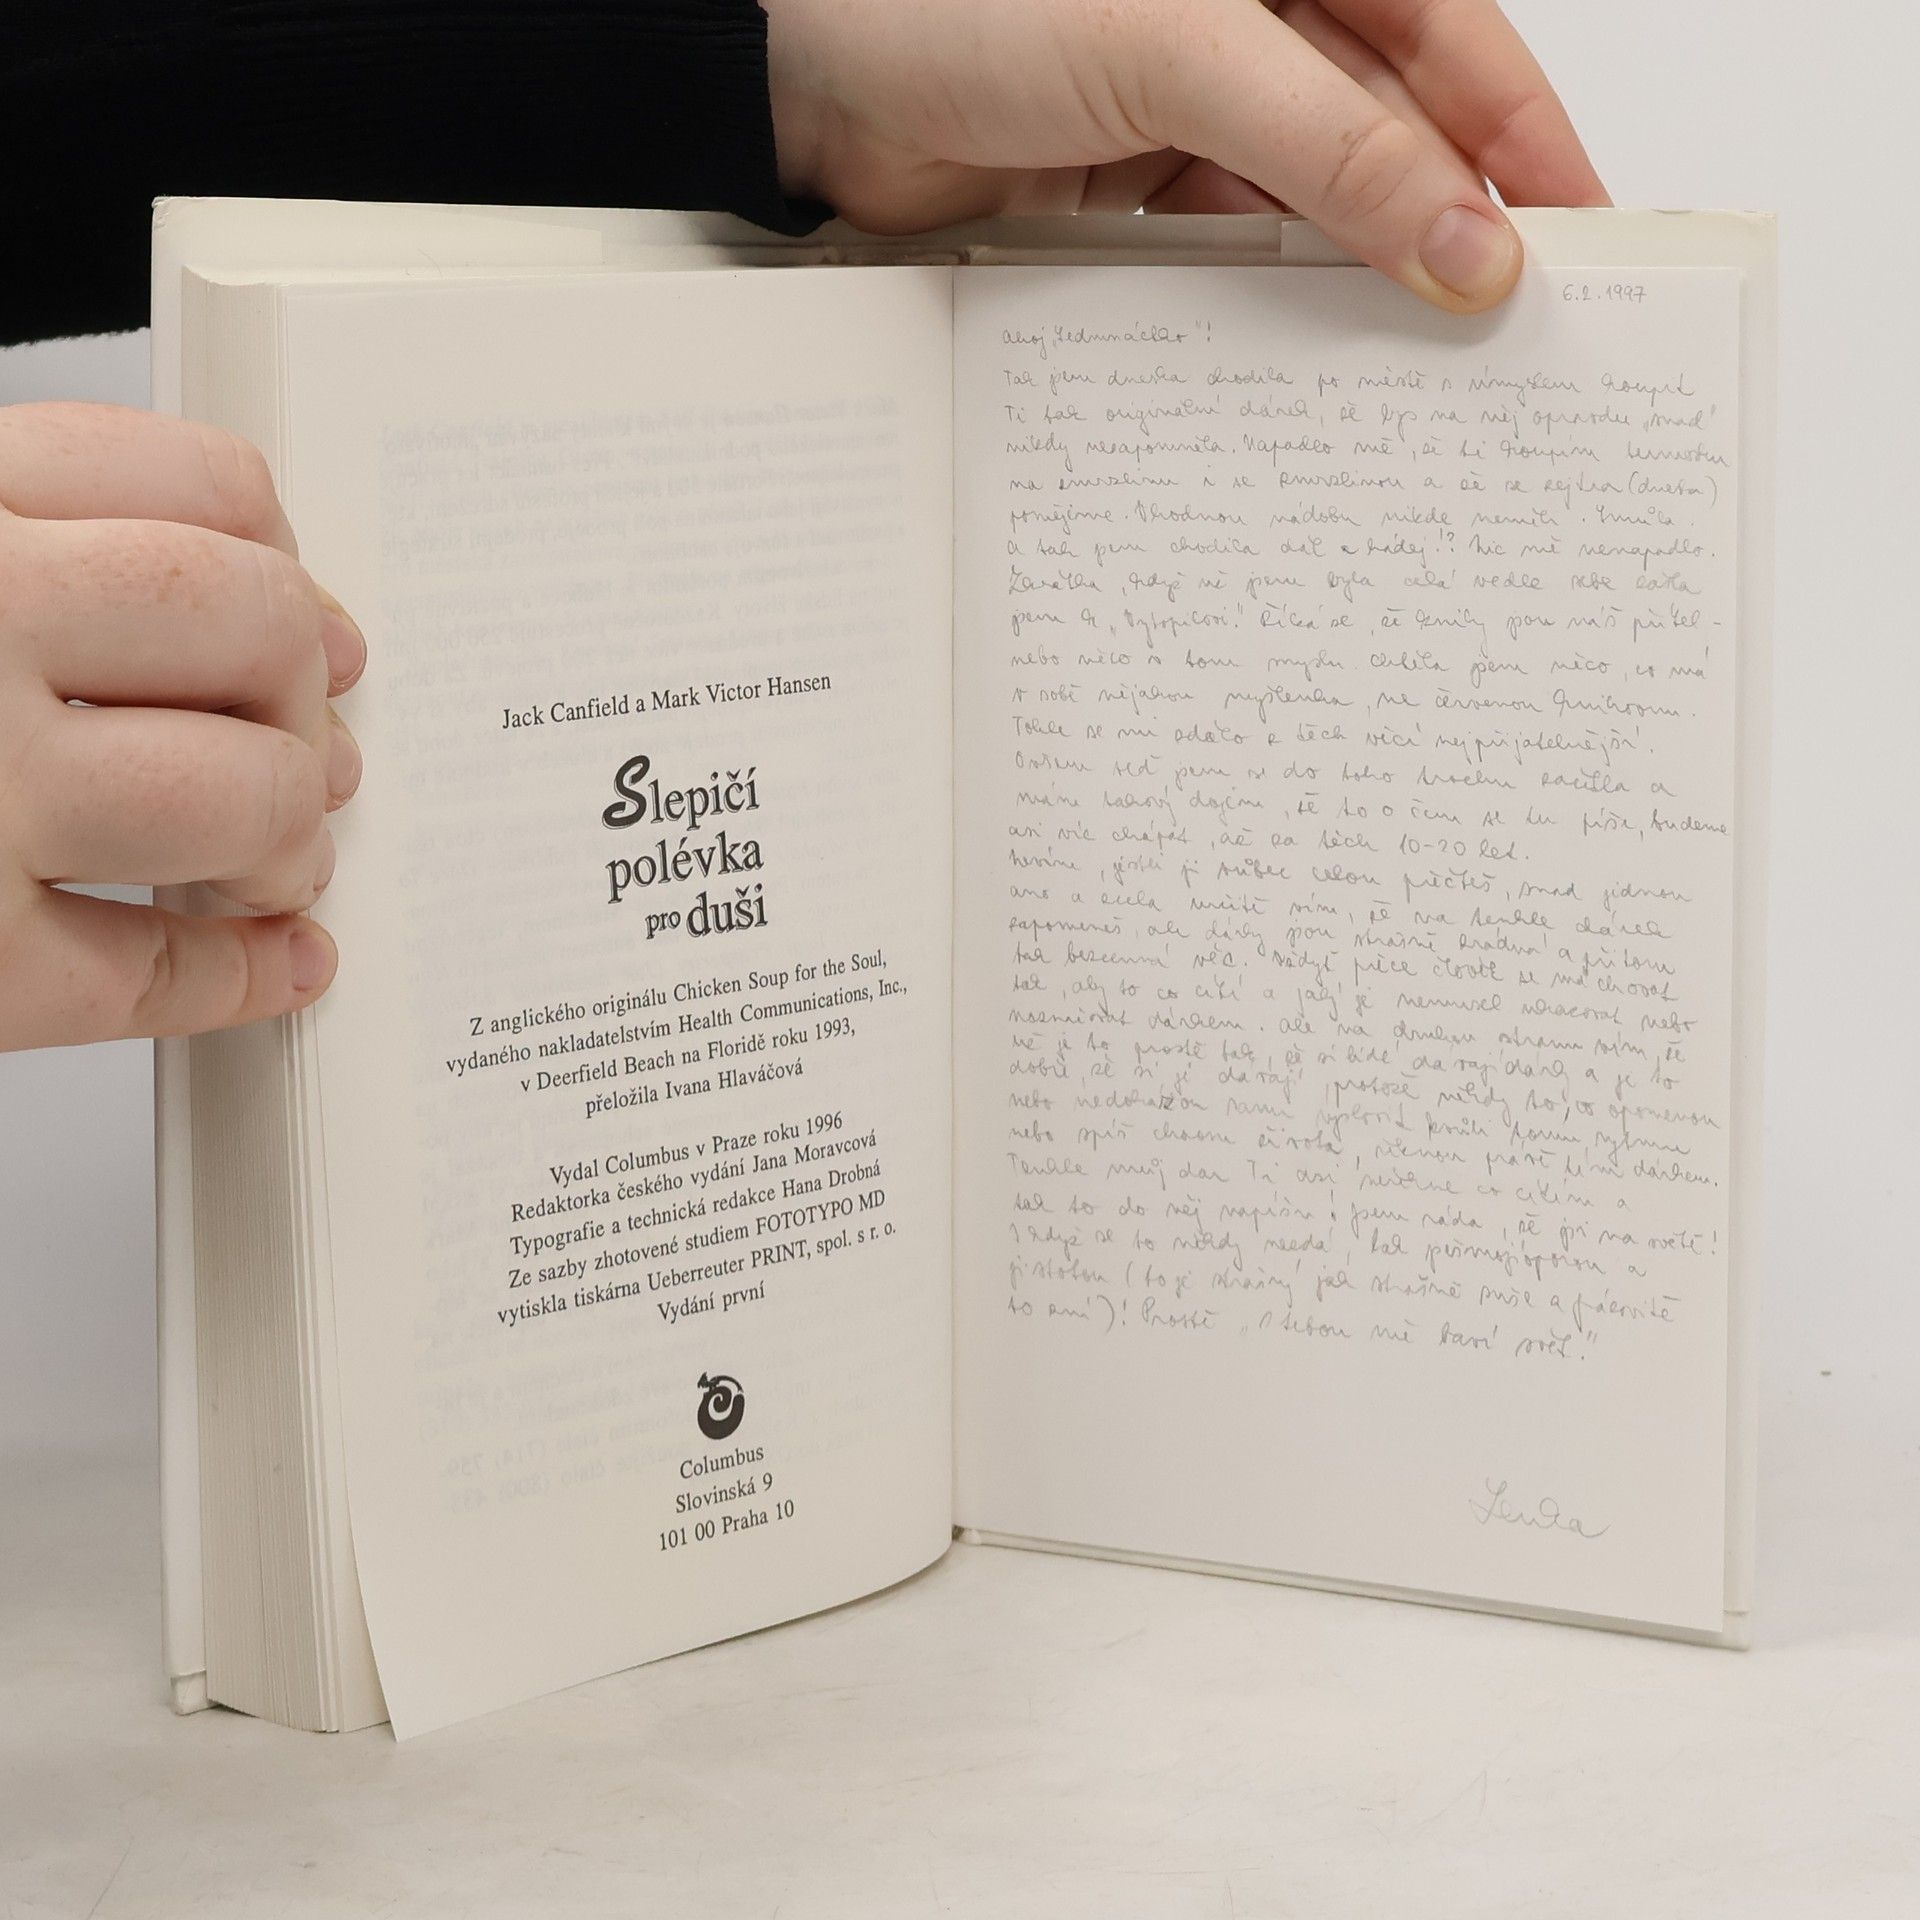 Jack Canfield a Mark Victor Hansen
Slepičí
polévka
pro duši
Z anglického originálu Chicken Soup for the Soul,
vydaného nakladatelstvím Health Communications, Inc.,
v Deerfield Beach na Floridě roku 1993,
přeložila Ivana Hlaváčová
Vydal Columbus v Praze roku 1996
Redaktorka českého vydání Jana Moravcová
Typografie a technická redakce Hana Drobná
Ze sazby zhotovené studiem FOTOTYPO MD
vytiskla tiskárna Ueberreuter PRINT, spol. s r. o.
Vydání první
Columbus
Slovinská 9
101 00 Praha 10
6.2.1997
Ahoj „Jedenáctko"!
Tak jsem dneska chodila po městě s úmyslem koupit
Ti tak originální dárek, že bys na něj opravdu „snad"
nikdy nezapomněla. Napadlo mě, že ti koupím termosku
na zmrzlinu i se zmrzlinou a že se zejtra (dneska)
Vhodnou nádobu nikde neměli. Smůla.
a tak jsem chodila dál a hádej!? Nic mě nenapadlo.
Zkrátka, když už jsem byla celá vedle sebe zašla
jsem k „Vytopilovi". Říká se, že knihy jsou náš přítel -
nebo něco v tom smyslu. Chtěla jsem něco, co má
v sobě nějakou myšlenku, ne červenou knihovnu.
Tohle se mi zdálo z těch věcí nejpřijatelnější.
Ovšem teď jsem se do toho trochu začetla a
mám takový dojem, že to o čem se tu píše, budeme
asi víc chápat, až za těch 10-20 let.
Nevím, jestli ji vůbec celou přečteš, snad jednou
ano a zcela určitě vím, že na tenhle dárek
zapomeneš, ale dárky jsou strašně zrádná a přitom
tak bezcenná věc. Vždyť přece člověk se má chovat
tak, aby to co cítí a jaký je nemusel ukazovat nebo
dárkem. Ale na druhou stranu vím, že
už je to prostě tak, že si lidé dávají dárky a je to
dobře, že si je dávají, protože někdy to, co opomenou
nebo nedokážou sami vyslovit kvůli tomu rytmu
nebo spíš chaosu života, řeknou právě tím dárkem.
Tenhle můj dar Ti asi neřekne co cítím a
tak to do něj napíšu! Jsem ráda, že jsi na světě!
I když se to někdy nezdá, tak jsi mojí oporou a
jistotou (to je strašný jak strašně suše a
to zní)! Prostě „s tebou mě baví svět."
Lenka